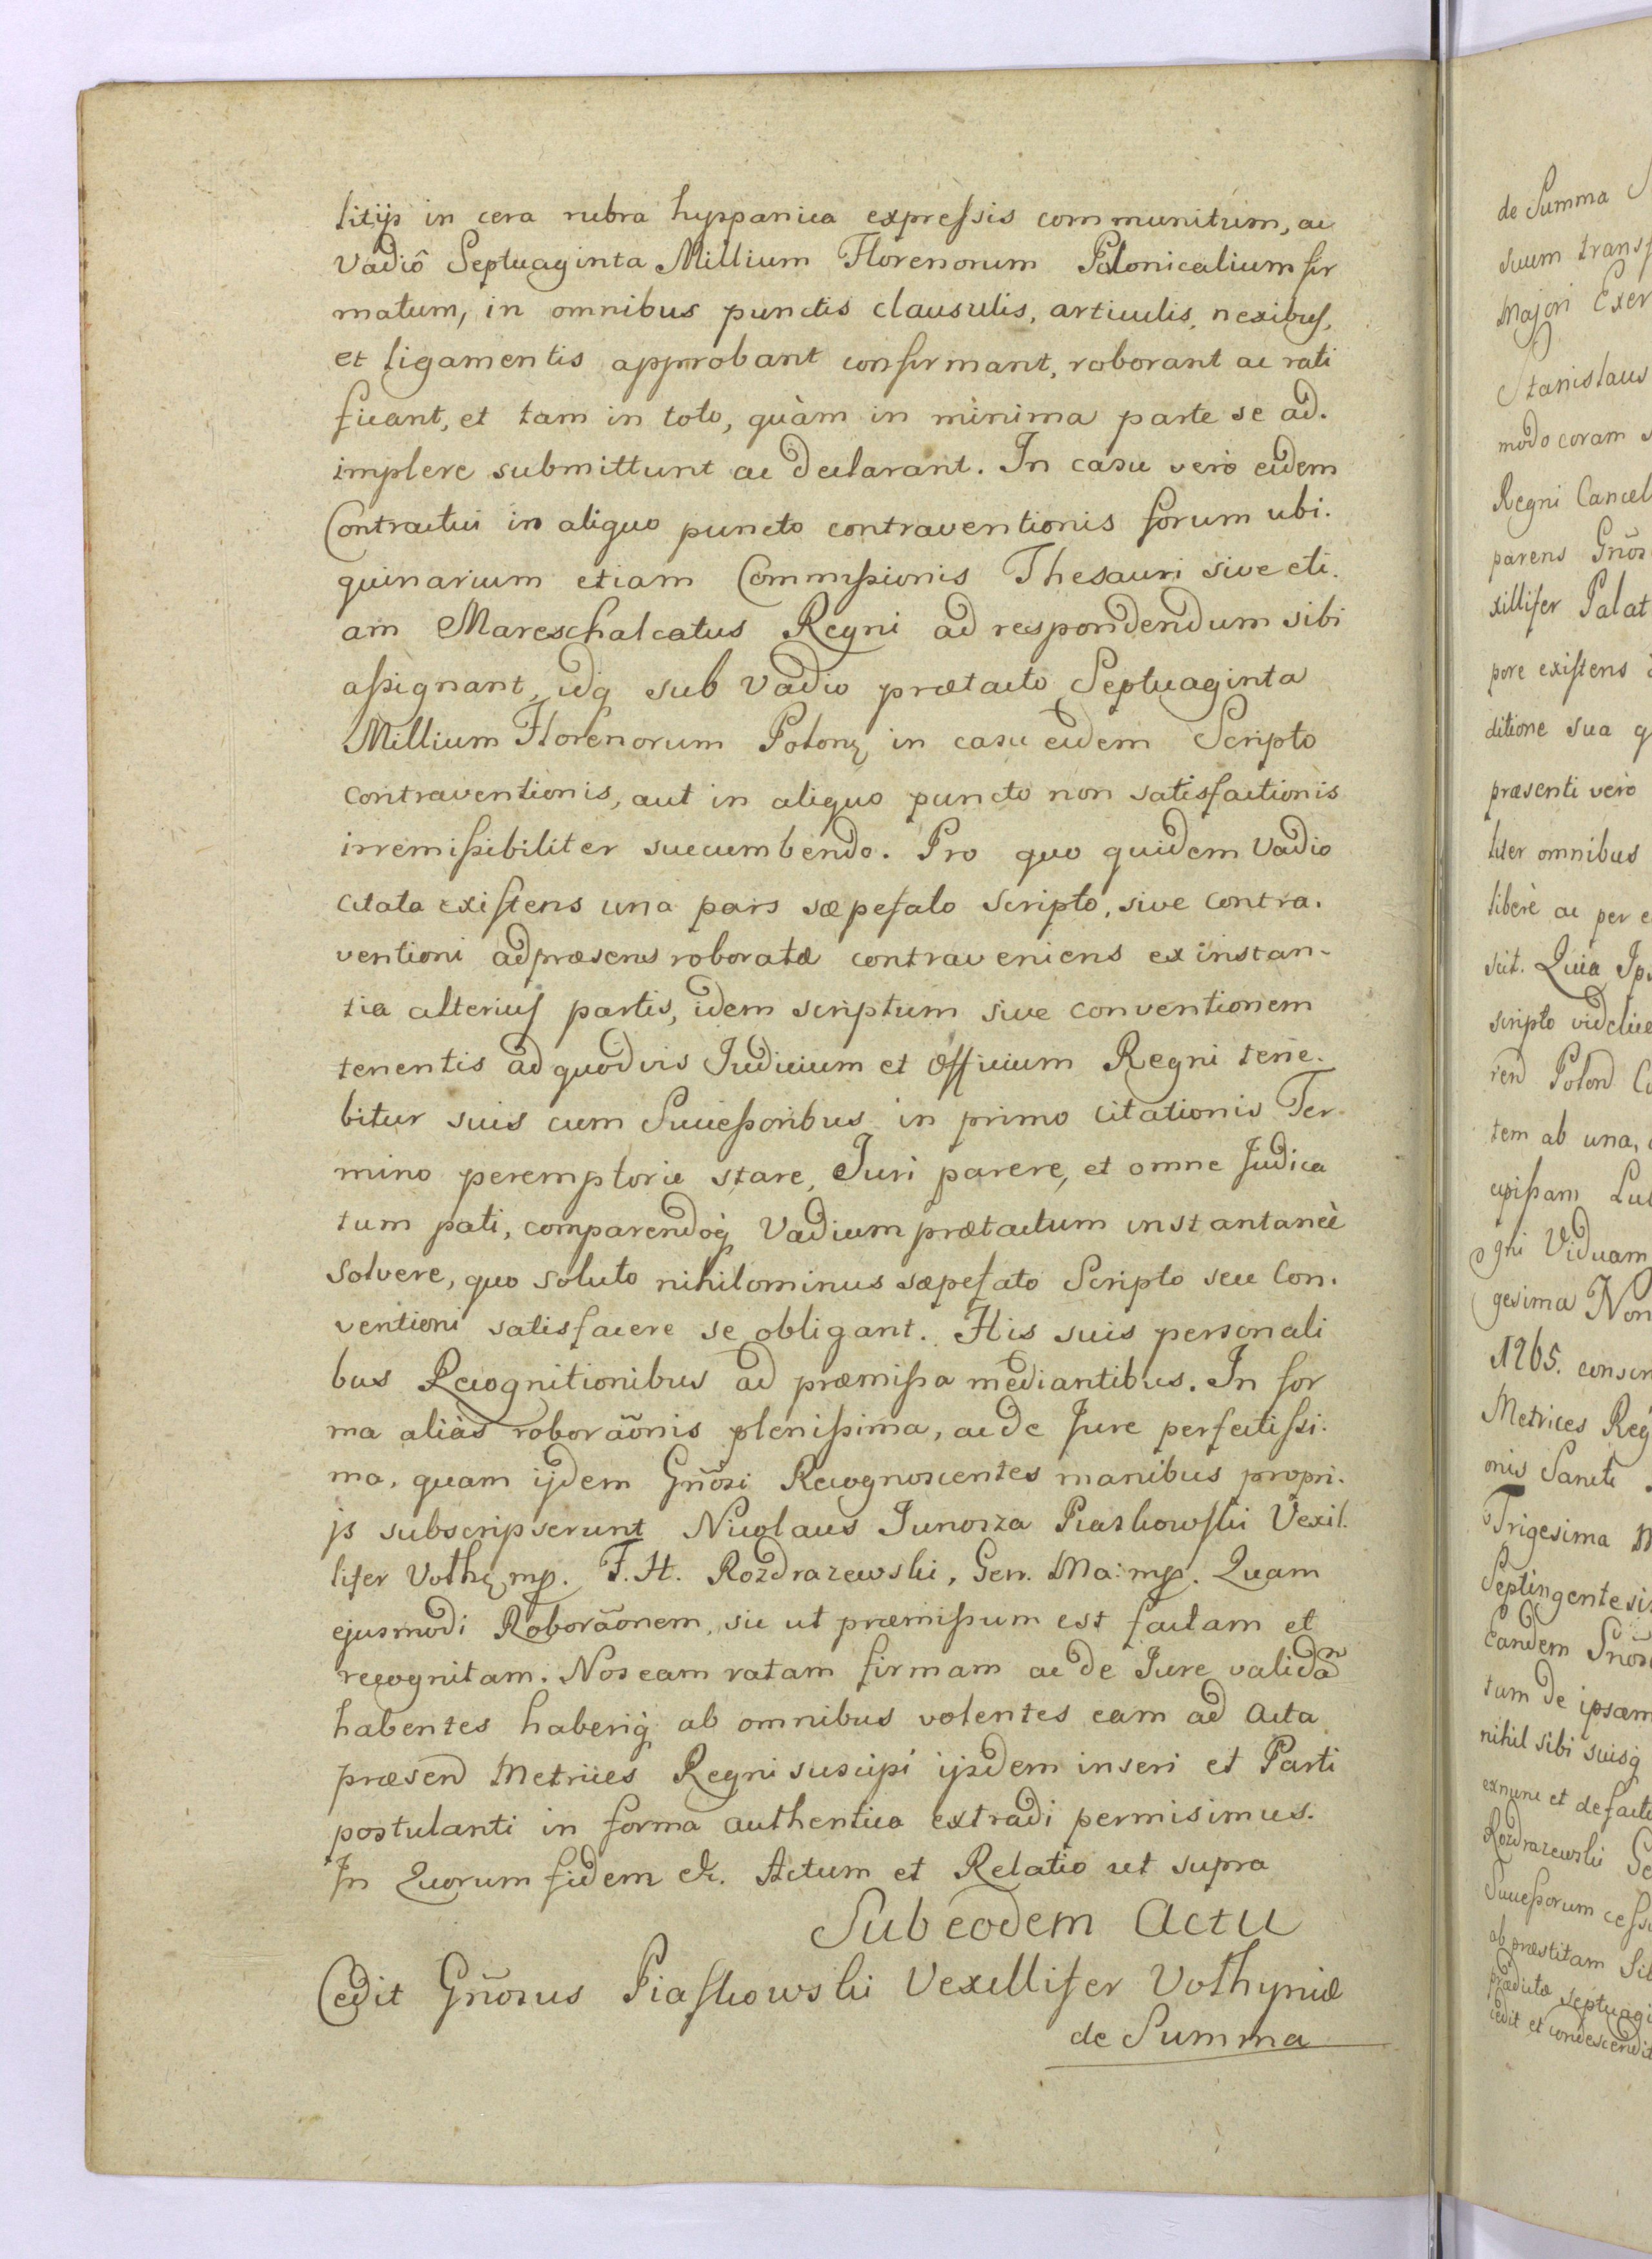 litijs in cera rubra hyspanica expressis communitum, ac
Vadiô Septuaginta Millium Florenorum Polonicalium fir
matum, in omnibus punctis clausulis, articulis, nexibus,
et ligamentis approbant confirmant, roborant ac rati
ficant, et tam in toto, quàm in minima parte se ad.
implere submittunt ac declarant. In casu verò eidem
Contractui in aliquo puncto contraventionis forum ubi.
quinarium etiam Commissionis Thesauri sive eti.
am Mareschalcatus Regni ad respondendum sibi
assignant, idq sub Vadio prætacto Septuaginta
Millium Florenorum Polonꝫ in casu eidem Scripto
contraventionis, aut in aliquo puncto non satisfactionis
irremissibiliter succumbendo. Pro quo quidem Vadio
citata existens una pars sæpefato Scripto, sive contra.
ventioni adpræsens roboratæ contraveniens ex instan-
tia alterius partis, idem scriptum sive conventionem
tenentis ad quodvis Judicium et Officium Regni tene.
bitur suis cum Successoribus in primo citationis Ter
mino peremptorie stare, Juri parere, et omne Judica
tum pati, comparendoq̀ Vadium prætactum instantaneè
solvere, quo soluto nihilominus sæpefato Scripto seu Con.
ventioni satisfacere se obligant. His suis personali
bus Recognitionibus ad præmissa mediantibus. In for
ma aliàs roborãonis plenissima, ac de Jure perfectissi.
ma, quam ijdem Gñosi Recognoscentes manibus propri.
js subscripserunt Nicolaus Junosza Piaskowski Vexil.
lifer Volhꝫ mp. F. H. Rozdrazewski, Gen. Ma: mp. Quam
ejusmodi Roborãonem, sic ut præmissum est factam et
recognitam. Nos eam ratam firmam ac de Jure validã
habentes haberiq̀ ab omnibus volentes eam ad Acta
præsend Metrices Regni suscipi ijsdem inseri et Parti
postulanti in forma authentica extradi permisimus.
In Quorum fidem &c. Actum et Relatio ut supra
Sub eodem Actu
Cedit Gñosus Piaskowski Vexillifer Volhyniæ
de Summa
de Summa
suum trans
Majori Exer
Stanislaus
modo coram
Regni Cancel
parens Gños
xillifer Palat
pore existens
ditione sua q
præsenti verò
liter omnibus
liberè ac per e
scit. Quia Ip
scripto videlice
ren Polon C
tem ab una,
epissam Lu
gni Viduam
gesima Non
1765. conscr
Metrices Reg
onis Sancti
Trigesima M
Septingentesi
Eandem Gños
tam de ipsam
nihil sibi suisq̀
exnunc et defacto
Rozdrazewski Ge
Successorum cess
ab præstitam Sib
prædictæ septuagi
cedit et condescendit